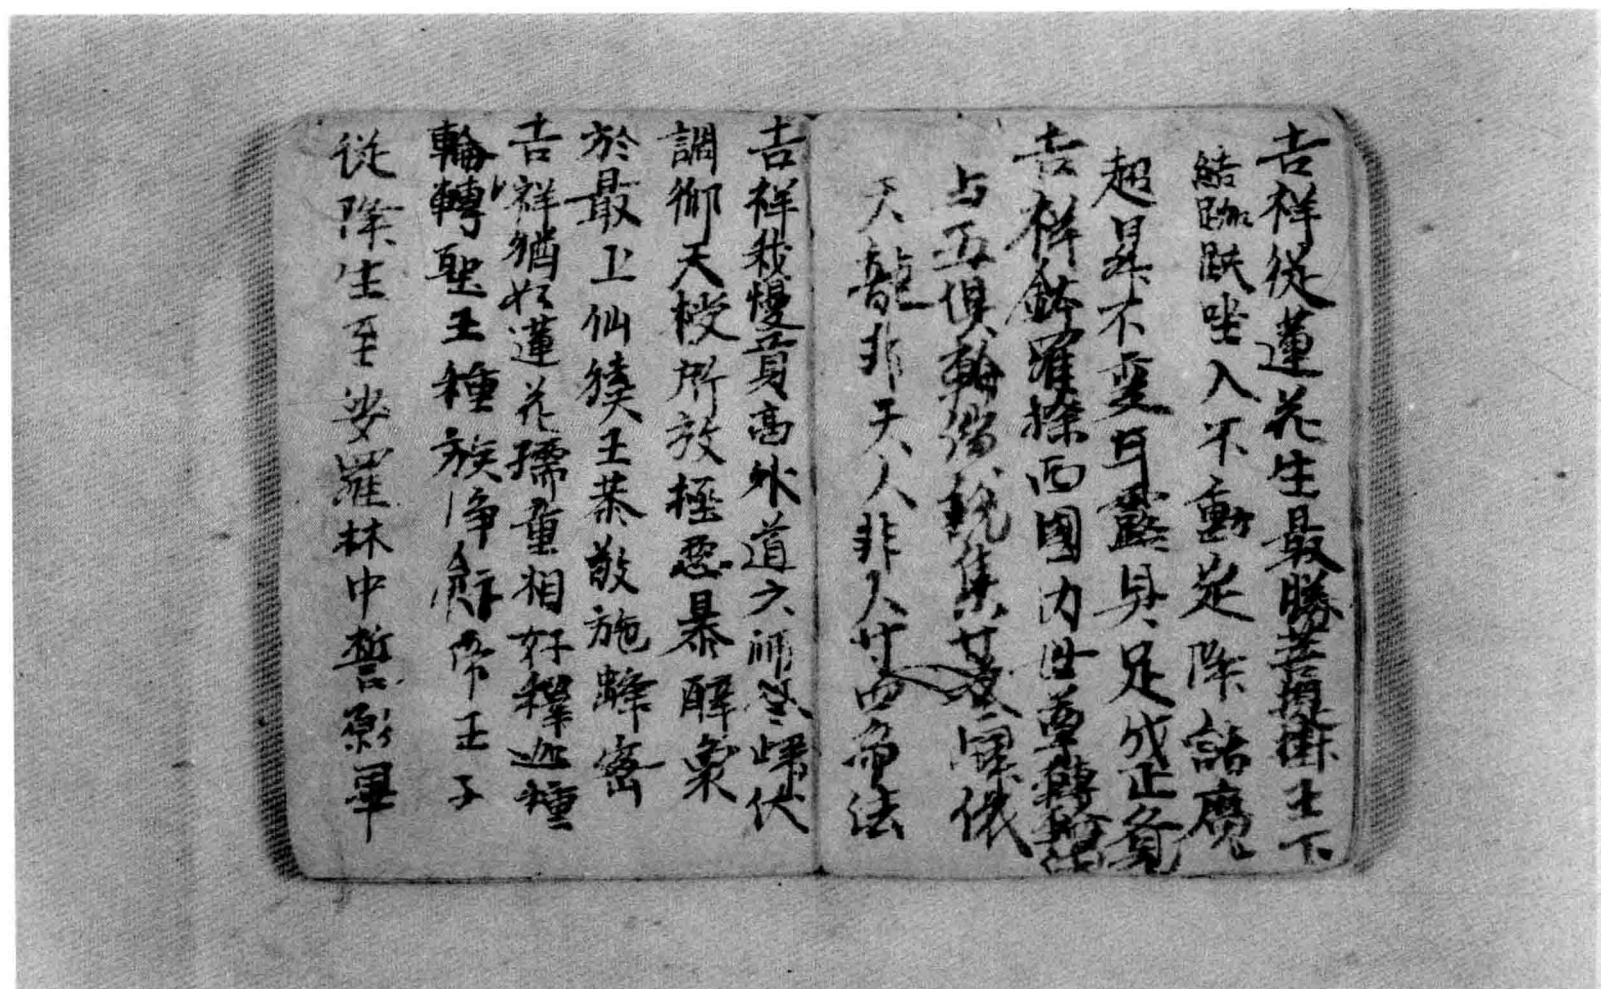 吉祥從蓮花生最勝菩提樹王下
結跏趺坐入不動定降諸魔
超昇不變甘露具足成正覺
吉祥鉢羅捺西國內世尊轉
与五俱輪說集廿
天龍非天人非人廿四角法
吉祥我慢貢高外道六師歸伏
調御天授所放極惡暴醉象
於最上仙猨王恭敬施蜂蜜
吉祥猶如蓮花孺童相好釋迦種
輪轉聖王種族淨飯帝王子
從降生至娑羅林中誓願畢